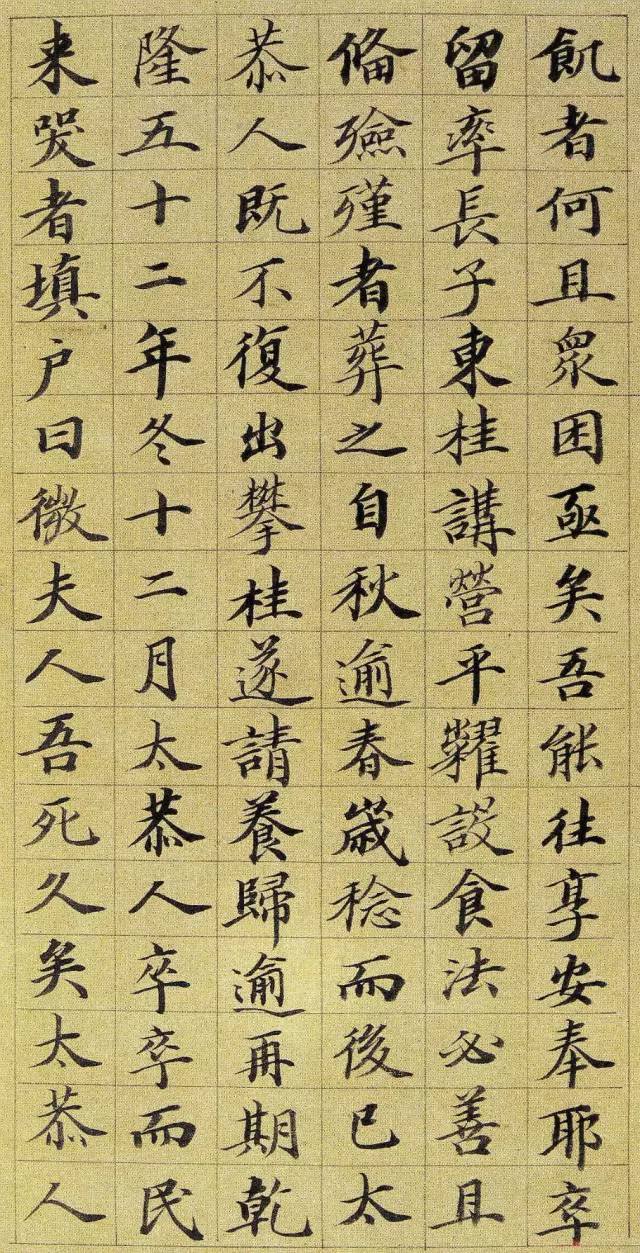 飢者何且衆困亟矣吾能往享安奉耶卒
留率長子東桂講營平糶設食法必善且
俻殮殣者葬之自秋逾春歲稔而後已太
恭人既不復出攀桂遂請養歸逾再期乾
隆五十二年冬十二月太恭人卒卒而民
来哭者填户曰微夫人吾死久矣太恭人